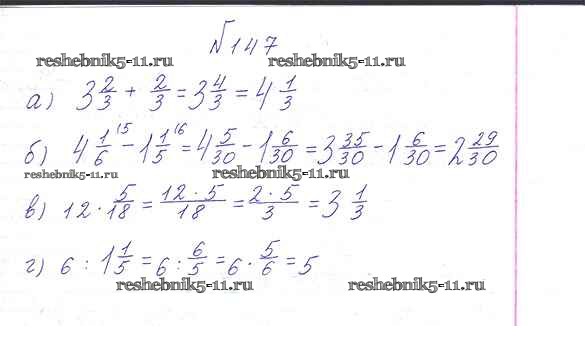 №147
reshebnik5-11.ru reshebnik5-11.ru
а) 3 2/3 + 2/3 = 3 4/3 = 4 1/3
б) 4 1/6 ⁽⁵ - 1 1/5 ⁽⁶ = 4 5/30 - 1 6/30 = 3 35/30 - 1 6/30 = 2 29/30
reshebnik5-11.ru reshebnik5-11.ru
в) 12 · 5/18 = 12 · 5/18 = 2 · 5/3 = 3 1/3
г) 6 : 1 1/5 = 6 : 6/5 = 6 · 5/6 = 5
reshebnik5-11.ru reshebnik5-11.ru